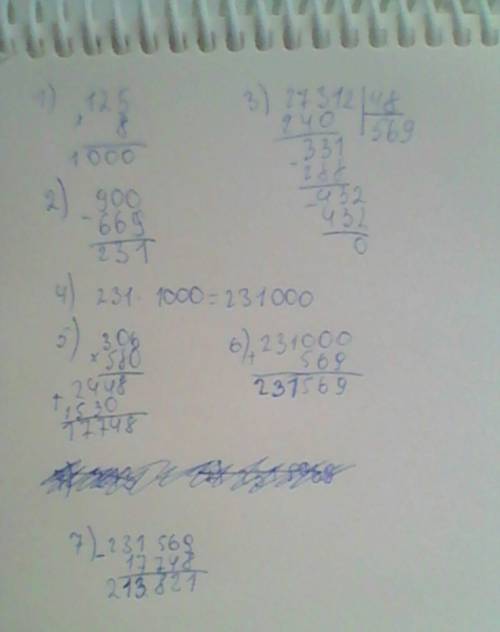 1) 125
× 8
1000
2) 900
- 669
231
3) 27312 | 48
240 | 569
331
- 288
- 432
432
0
4) 231 · 1000 = 231000
5) 306
× 580
+ 2448
1530
17748
6) 231000
+ 569
231569
7) - 231569
17748
213821